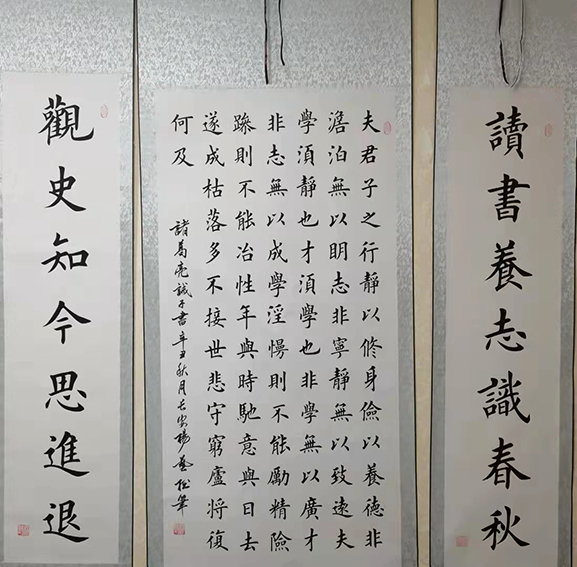 讀書養志識春秋
夫君子之行靜以修身儉以養德非
澹泊無以明志非寧靜無以致遠夫
學須靜也才須學也非學無以廣才
非志無以成學淫慢則不能勵精險
躁則不能冶性年與時馳意與日去
遂成枯落多不接世悲守窮廬將復
何及
諸葛亮誡子書辛丑秋月長安楊筆
觀史知今思進退